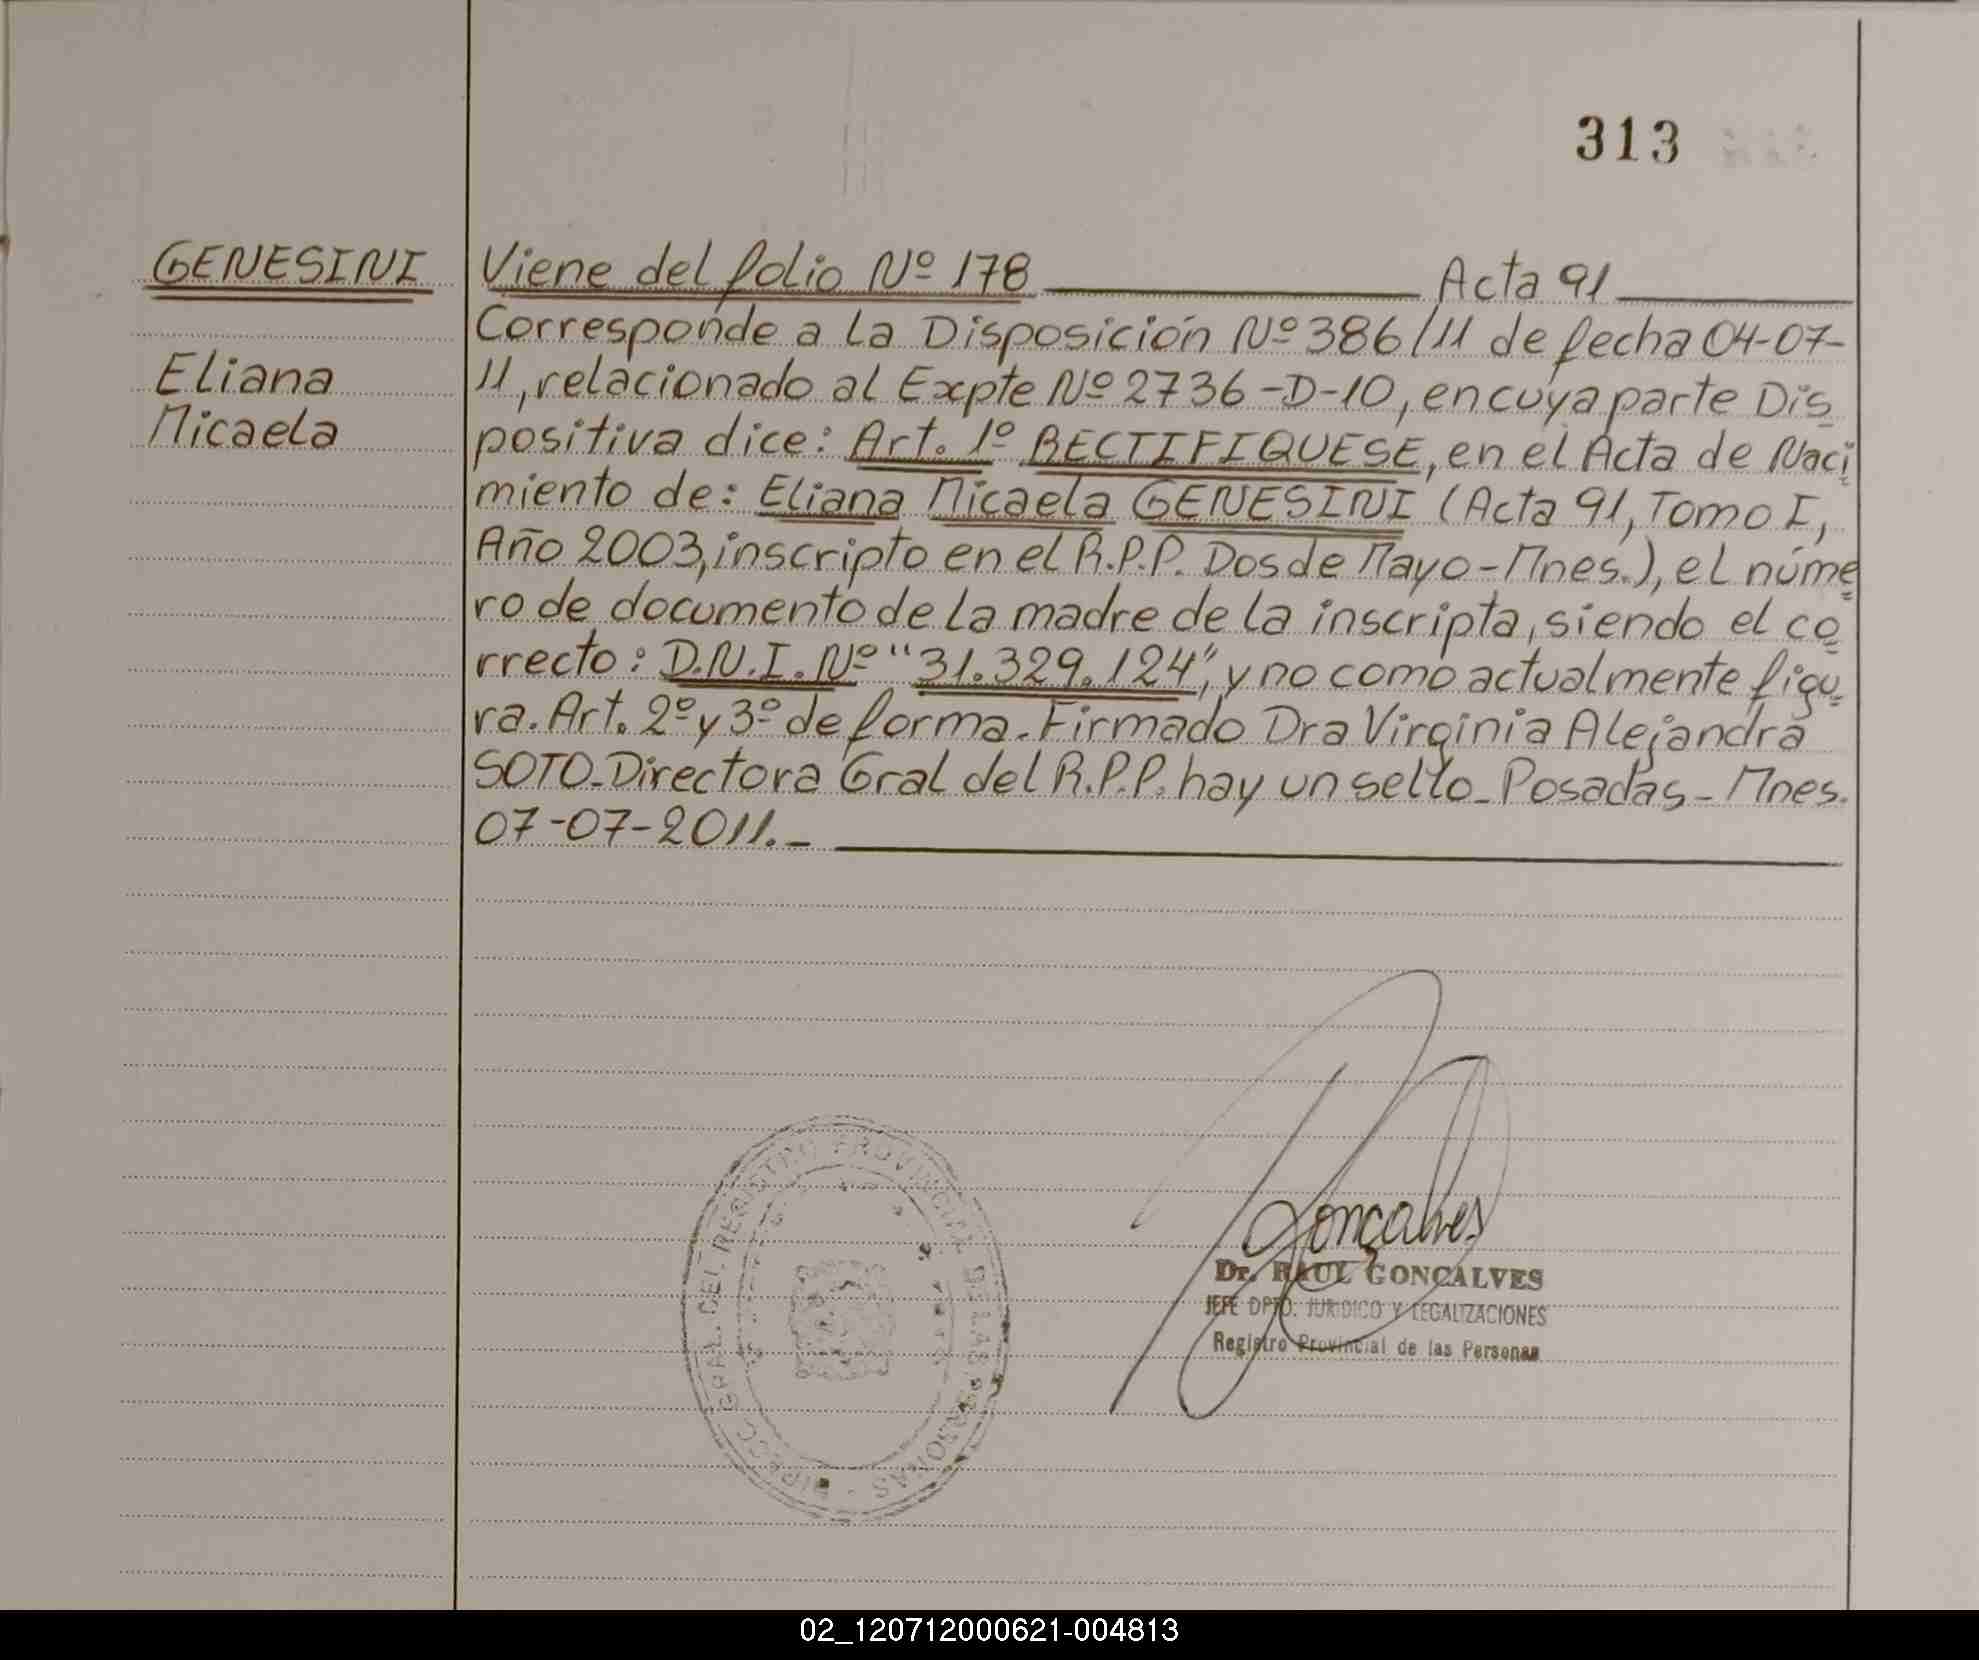 313
GENESINI
Eliana
Micaela
Viene del folio Nº 178 Acta 91
Corresponde a la Disposición Nº 386/11 de fecha 04-07-
11, relacionado al Expte Nº 2736-D-10, en cuya parte Dis
positiva dice: Art. 1º RECTIFIQUESE, en el Acta de Naci
miento de: Eliana Micaela GENESINI (Acta 91, Tomo I,
Año 2003, inscripto en el R.P.P. Dos de Mayo-Mnes.), el núme
ro de documento de la madre de la inscripta, siendo el co
rrecto: D.N.I. Nº "31.329.124", y no como actualmente figu
ra. Art. 2º y 3º de forma. Firmado Dra Virginia Alejandra
SOTO-Directora Gral del R.P.P. hay un sello-Posadas-Mnes.
07-07-2011.-
DIRECC. GRAL. DEL REGISTRO PROVINCIAL DE LAS PERSONAS
Gonçalves
Dr. RAUL GONÇALVES
JEFE DPTO. JURIDICO Y LEGALIZACIONES
Registro Provincial de las Personas
02_120712000621-004813